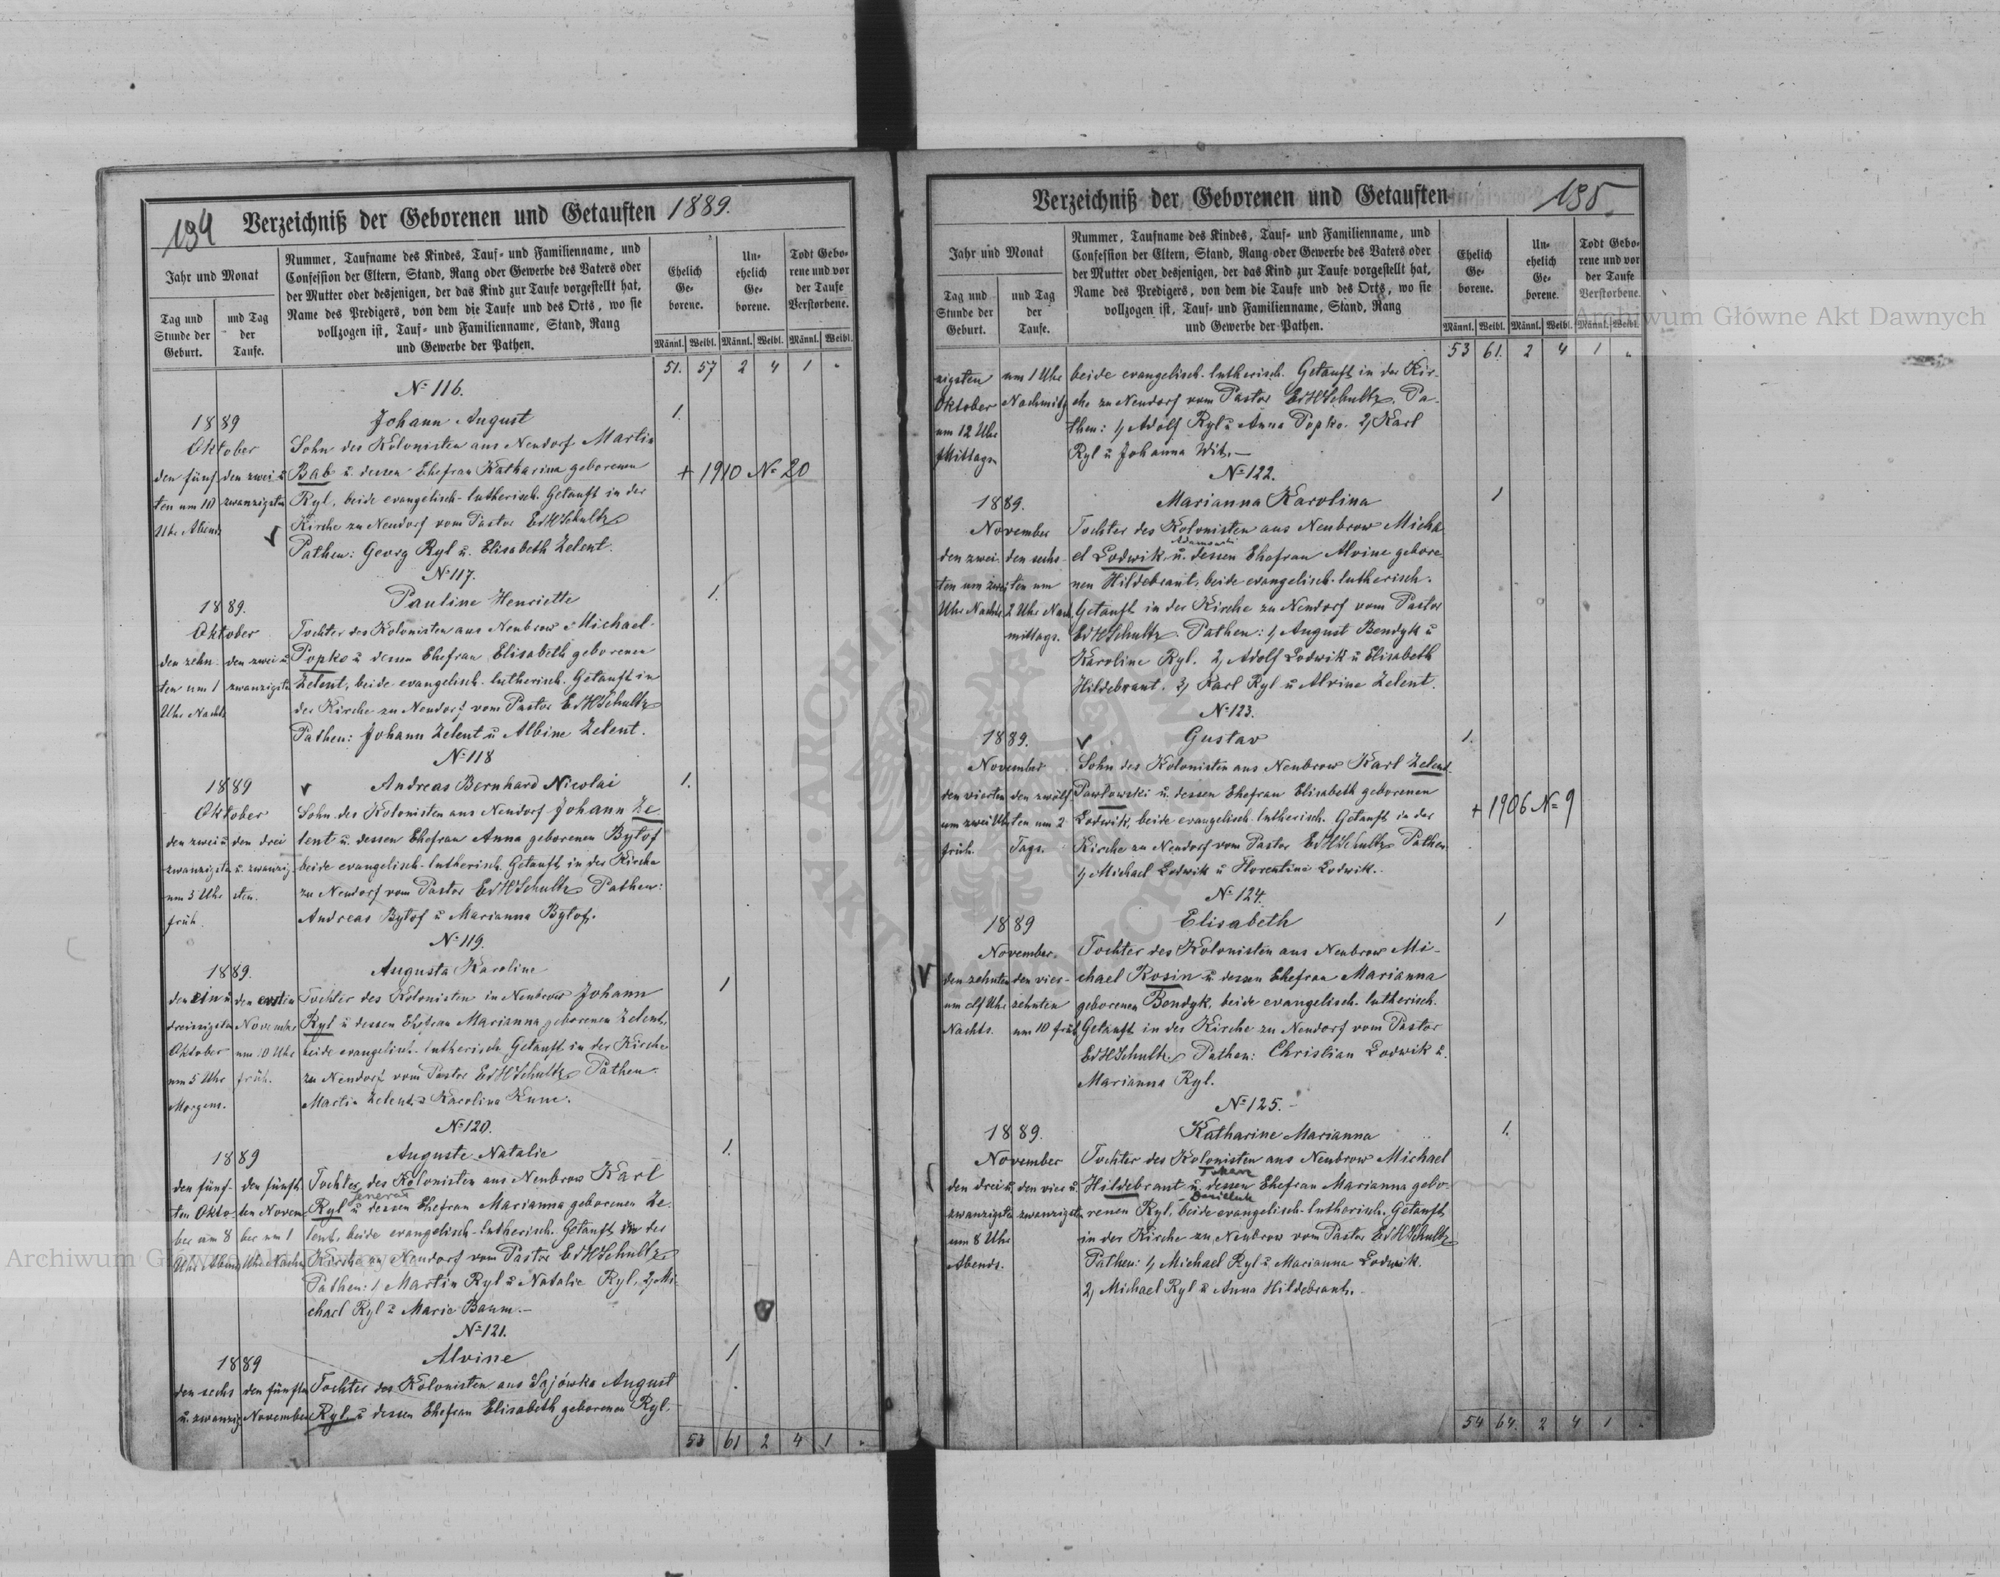 194 Verzeichniß der Geborenen und Getauften 1889.
Jahr und Monat
Tag und Stunde der Geburt.
und Tag der Taufe.
Nummer, Taufname des Kindes, Tauf- und Familienname, und
Confession der Eltern, Stand, Rang oder Gewerbe des Vaters oder
der Mutter oder desjenigen, der das Kind zur Taufe vorgestellt hat,
Name des Predigers, von dem die Taufe und des Orts, wo sie
vollzogen ist, Tauf- und Familienname, Stand, Rang
und Gewerbe der Pathen.
Ehelich Ge-borene.
Un-ehelich Ge-borene.
Todt Gebo-rene und vor der Taufe Verstorbene.
Männl. Weibl. Männl. Weibl. Männl. Weibl.
51. 57 2 4 1 "
№ 116.
1889 Johann August 1.
Oktober Sohn des Kolonisten aus Neudorf Martin
den fünf den zwei u Bab u. dessen Ehefrau Katharina geborenen + 1910 № 20
ten um 10 zwanzigsten Ryl, beide evangelisch-lutherisch. Getauft in der
Uhr Abends Kirche zu Neudorf vom Pastor EdHSchultz
Pathen: Georg Ryl u. Elisabeth Zelent.
№ 117.
1889. Pauline Henriette 1.
Oktober Tochter des Kolonisten aus Neubrow Michael
den zehn- den zwei u Popko u dessen Ehefrau Elisabeth geborenen
ten um 1 zwanzigsten Zelent, beide evangelisch-lutherisch. Getauft in
Uhr Nachts der Kirche zu Neudorf vom Pastor EdHSchultz
Pathen: Johann Zelent u Albine Zelent.
№ 118
1889 Andreas Bernhard Nicolai 1.
Oktober Sohn des Kolonisten aus Neudorf Johann Ze
den zwei u den drei lent u. dessen Ehefrau Anna geborenen Bytof
zwanzigsten u. zwanzig- beide evangelisch-lutherisch. Getauft in der Kirche
um 3 Uhr sten. zu Neudorf vom Pastor EdHSchultz Pathen:
früh. Andreas Bytof u Marianna Bytof.
№ 119.
1889. Augusta Karoline 1
den ein u den ersten Tochter des Kolonisten in Neubrow Johann
dreissigsten November Ryl u dessen Ehefrau Marianna geborenen Zelent,
Oktober um 10 Uhr beide evangelisch-lutherisch. Getauft in der Kirche
um 5 Uhr früh. zu Neudorf vom Pastor EdHSchultz Pathen:
Morgens. Martin Zelent u Karolina Kunc.
№ 120.
1889 Auguste Natalie 1.
den fünf- den fünf Tochter des Kolonisten aus Neubrow Karl
ten Okto- ten Novem Ryl u dessen Ehefrau Marianna geborenen Ze-
ber um 8 ber um 1 lent, beide evangelisch-lutherisch. Getauft in der
Uhr Abends Uhr Nachm Kirche zu Neudorf vom Pastor EdHSchultz
Pathen: 1, Martin Ryl u Natalie Ryl, 2, Mi-
chael Ryl u Marie Baum.
№ 121.
1889 Alvine 1
den sechs den fünften Tochter des Kolonisten aus Sajówka August
u. zwanzig November Ryl u dessen Ehefrau Elisabeth geborenen Ryl
53 61 2 4 1 "
Verzeichniß der Geborenen und Getauften 195.
Jahr und Monat
Tag und Stunde der Geburt.
und Tag der Taufe.
Nummer, Taufname des Kindes, Tauf- und Familienname, und
Confession der Eltern, Stand, Rang oder Gewerbe des Vaters oder
der Mutter oder desjenigen, der das Kind zur Taufe vorgestellt hat,
Name des Predigers, von dem die Taufe und des Orts, wo sie
vollzogen ist, Tauf- und Familienname, Stand, Rang
und Gewerbe der Pathen.
Ehelich Ge-borene.
Un-ehelich Ge-borene.
Todt Gebo-rene und vor der Taufe Verstorbene.
Männl. Weibl. Männl. Weibl. Männl. Weibl.
53 61. 2 4 1 "
zigsten um 1 Uhr beide evangelisch-lutherisch. Getauft in der Kir-
Oktober Nachmitg che zu Neudorf vom Pastor EdHSchultz. Pa-
um 12 Uhr then: 1, Adolf Ryl u Anna Popko. 2, Karl
Mittags Ryl u Johanna Wit.
№ 122.
1889. Marianna Karolina 1
November Tochter des Kolonisten aus Neubrow Micha
den zwei- den sechs el Lodwik u. dessen Ehefrau Alvine gebore
ten um zwei ten um nen Hildebrant, beide evangelisch-lutherisch.
Uhr Nachts 2 Uhr Nach Getauft in der Kirche zu Neudorf vom Pastor
mittags. EdHSchultz. Pathen: 1, August Bendyk u
Karoline Ryl. 2, Adolf Lodwik u Elisabeth
Hildebrant. 3, Karl Ryl u Alvine Zelent.
№ 123.
1889. Gustav 1.
November Sohn des Kolonisten aus Neubrow Karl Zelent-
den vierten den zwölf Pawlowski u. dessen Ehefrau Elisabeth geborenen + 1906 № 9
um zwei Uhr ten um 2 Lodwik, beide evangelisch-lutherisch. Getauft in der
früh. Tags. Kirche zu Neudorf vom Pastor EdHSchultz Pathen
1, Michael Lodwik u Florentine Lodwik.
№ 124.
1889 Elisabeth 1
November. Tochter des Kolonisten aus Neubrow Mi-
den zehnten den vier- chael Rosin u dessen Ehefrau Marianna
um elf Uhr zehnten geborenen Bendyk, beide evangelisch-lutherisch.
Nachts. um 10 früh Getauft in der Kirche zu Neudorf vom Pastor
EdHSchultz. Pathen: Christian Lodwik u.
Marianna Ryl.
№ 125.
1889. Katharine Marianna 1.
November Tochter des Kolonisten aus Neubrow Michael
den drei u. den vier u. Hildebrant u. dessen Ehefrau Marianna gebo-
zwanzigsten zwanzigsten renen Ryl, beide evangelisch-lutherisch. Getauft
um 8 Uhr in der Kirche zu Neubrow vom Pastor EdHSchultz
Abends. Pathen: 1, Michael Ryl u Marianna Lodwik.
2, Michael Ryl u Anna Hildebrant.
54 64. 2 4 1 "
Archiwum Główne Akt Dawnych
Archiwum Główne Akt Dawnych